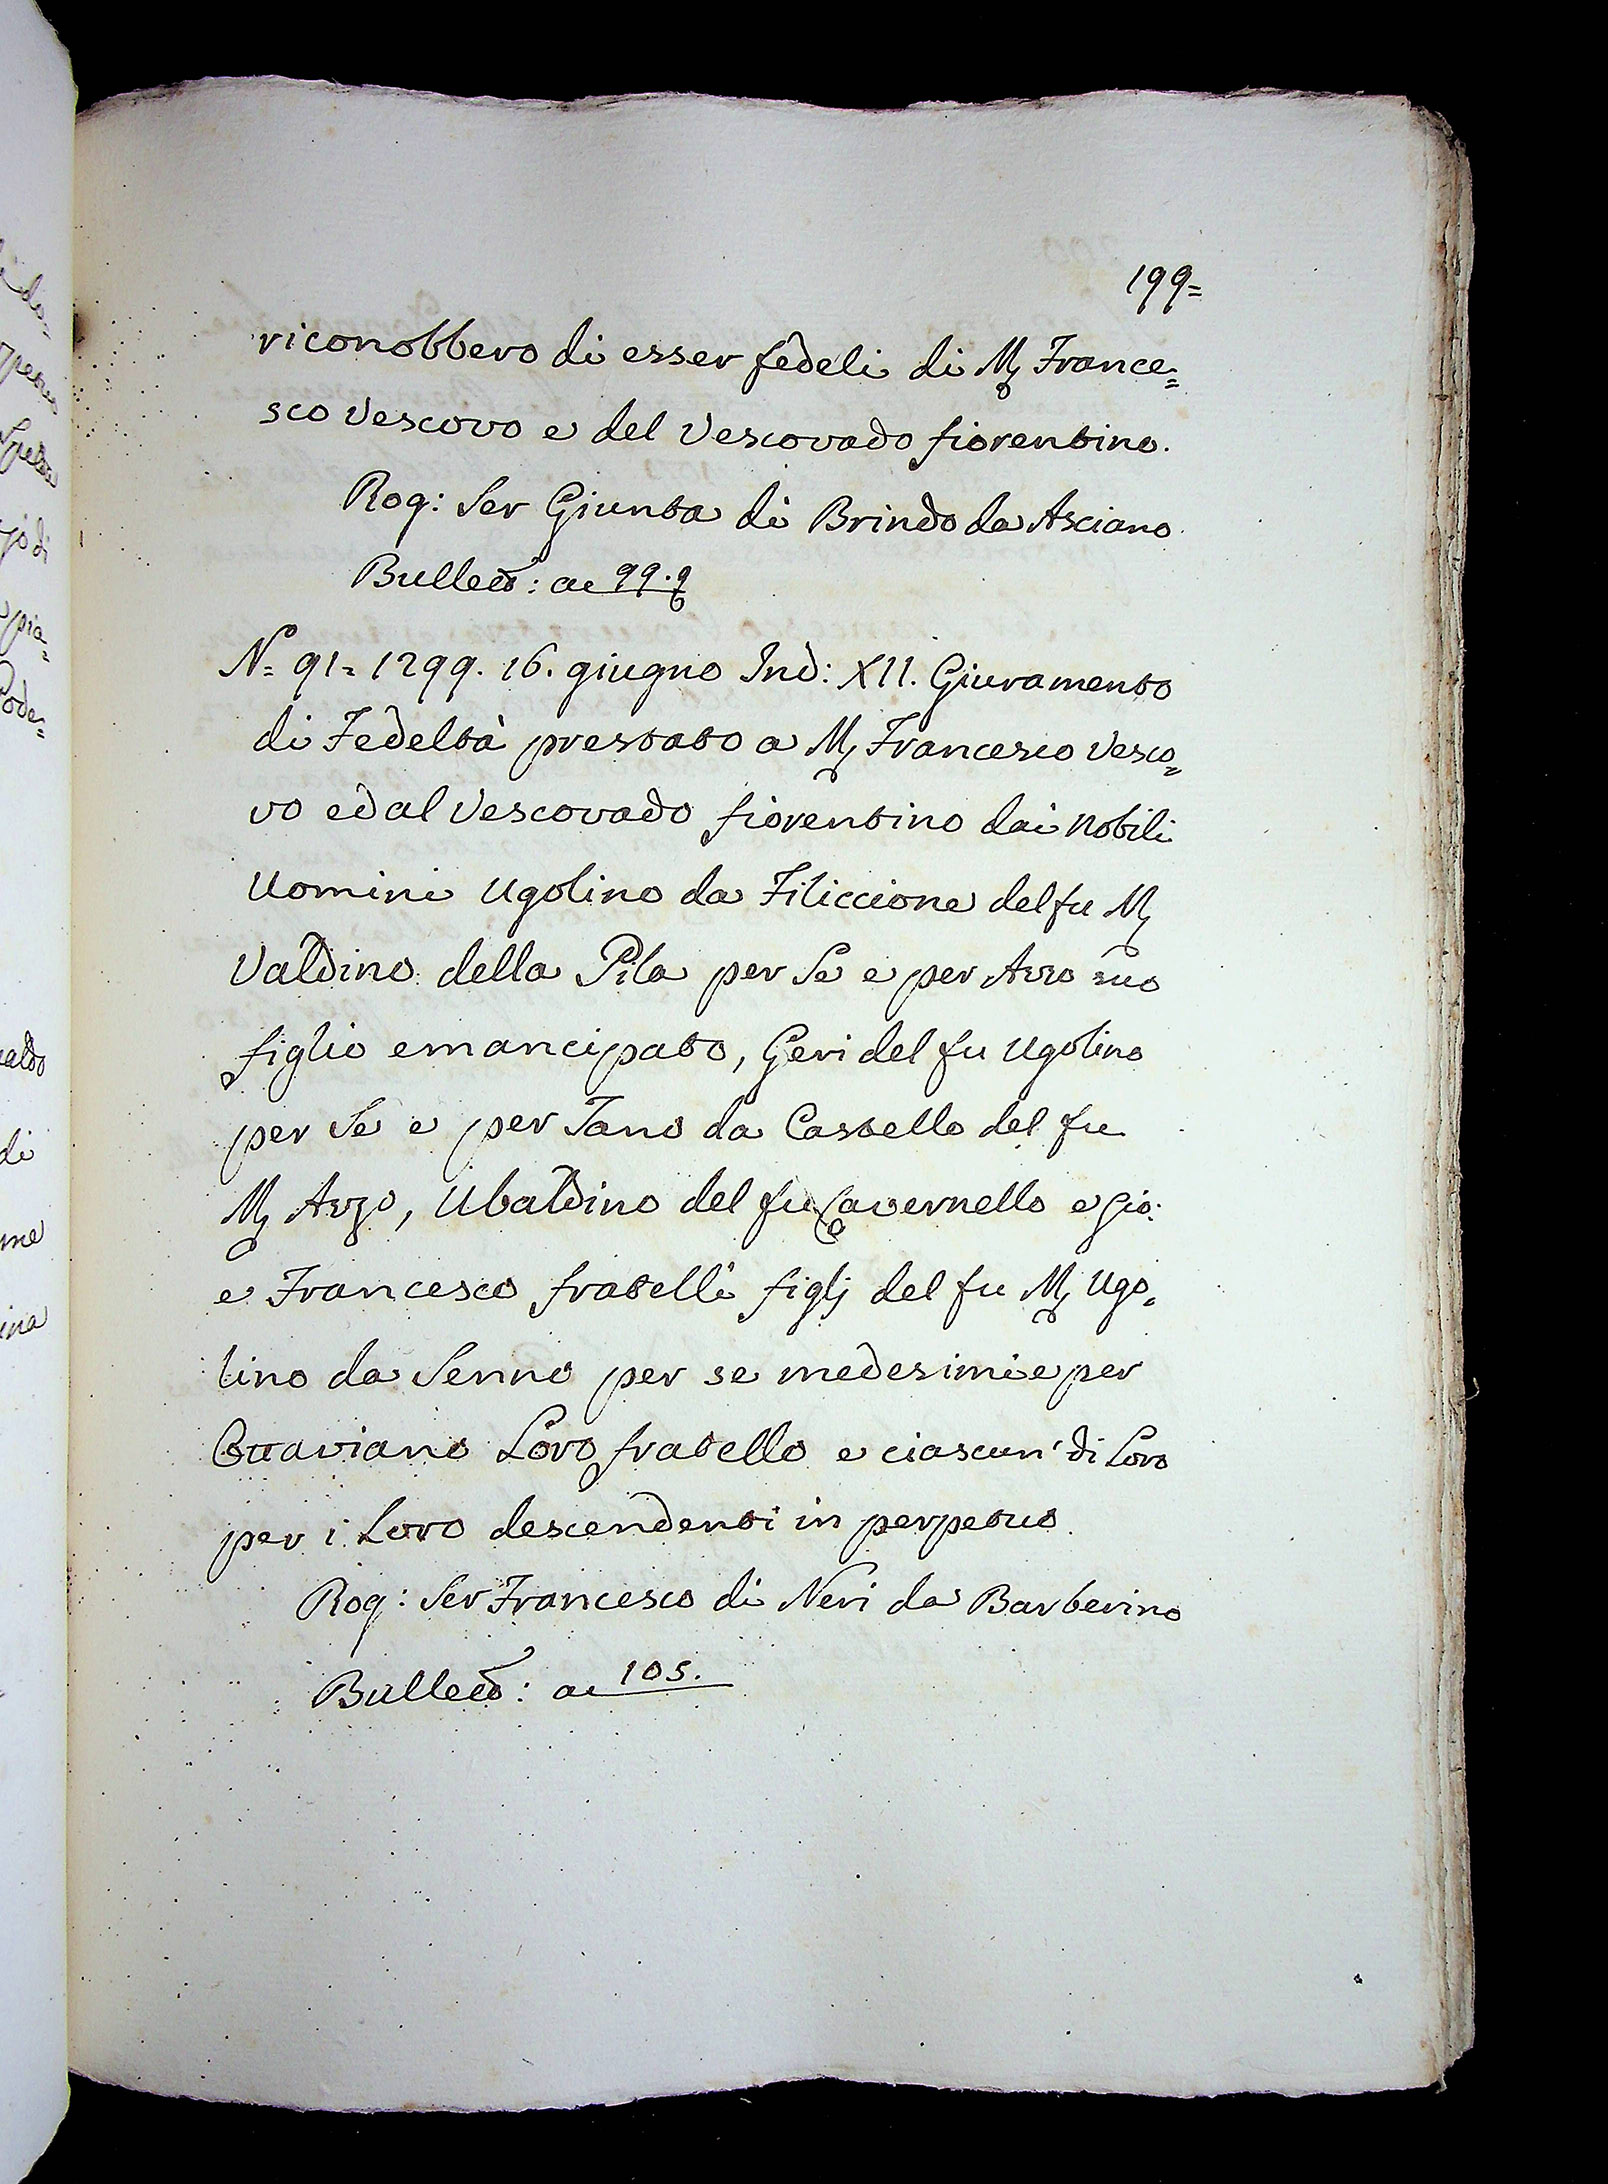 199=
riconobbero di esser fedeli di M. France=
sco Vescovo e del Vescovado fiorentino.
Rog: Ser Giunta di Brindo da Asciano
Bullett: a 99.
N.= 91= 1299. 16. giugno Ind: XII. Giuramento
di Fedeltà prestato a M. Francesco Vesco=
vo ed al Vescovado fiorentino dai Nobili
Uomini Ugolino da Filiccione del fu M.
Valdino della Pila per Se e per Azzo suo
figlio emancipato, Geri del fu Ugolino
per Se e per Tano da Castello del fu
M. Azzo, Ubaldino del fu Cavernello e Gio:
e Francesco fratelli figlj del fu M. Ugo=
lino da Senno per se medesimi e per
Ottaviano Loro fratello e ciascun' di Loro
per i Loro descendenti in perpetuo
Rog: Ser Francesco di Neri da Barberino
Bullett: a 105.
do=
pia=
Pode=
aldo
di
me
ina